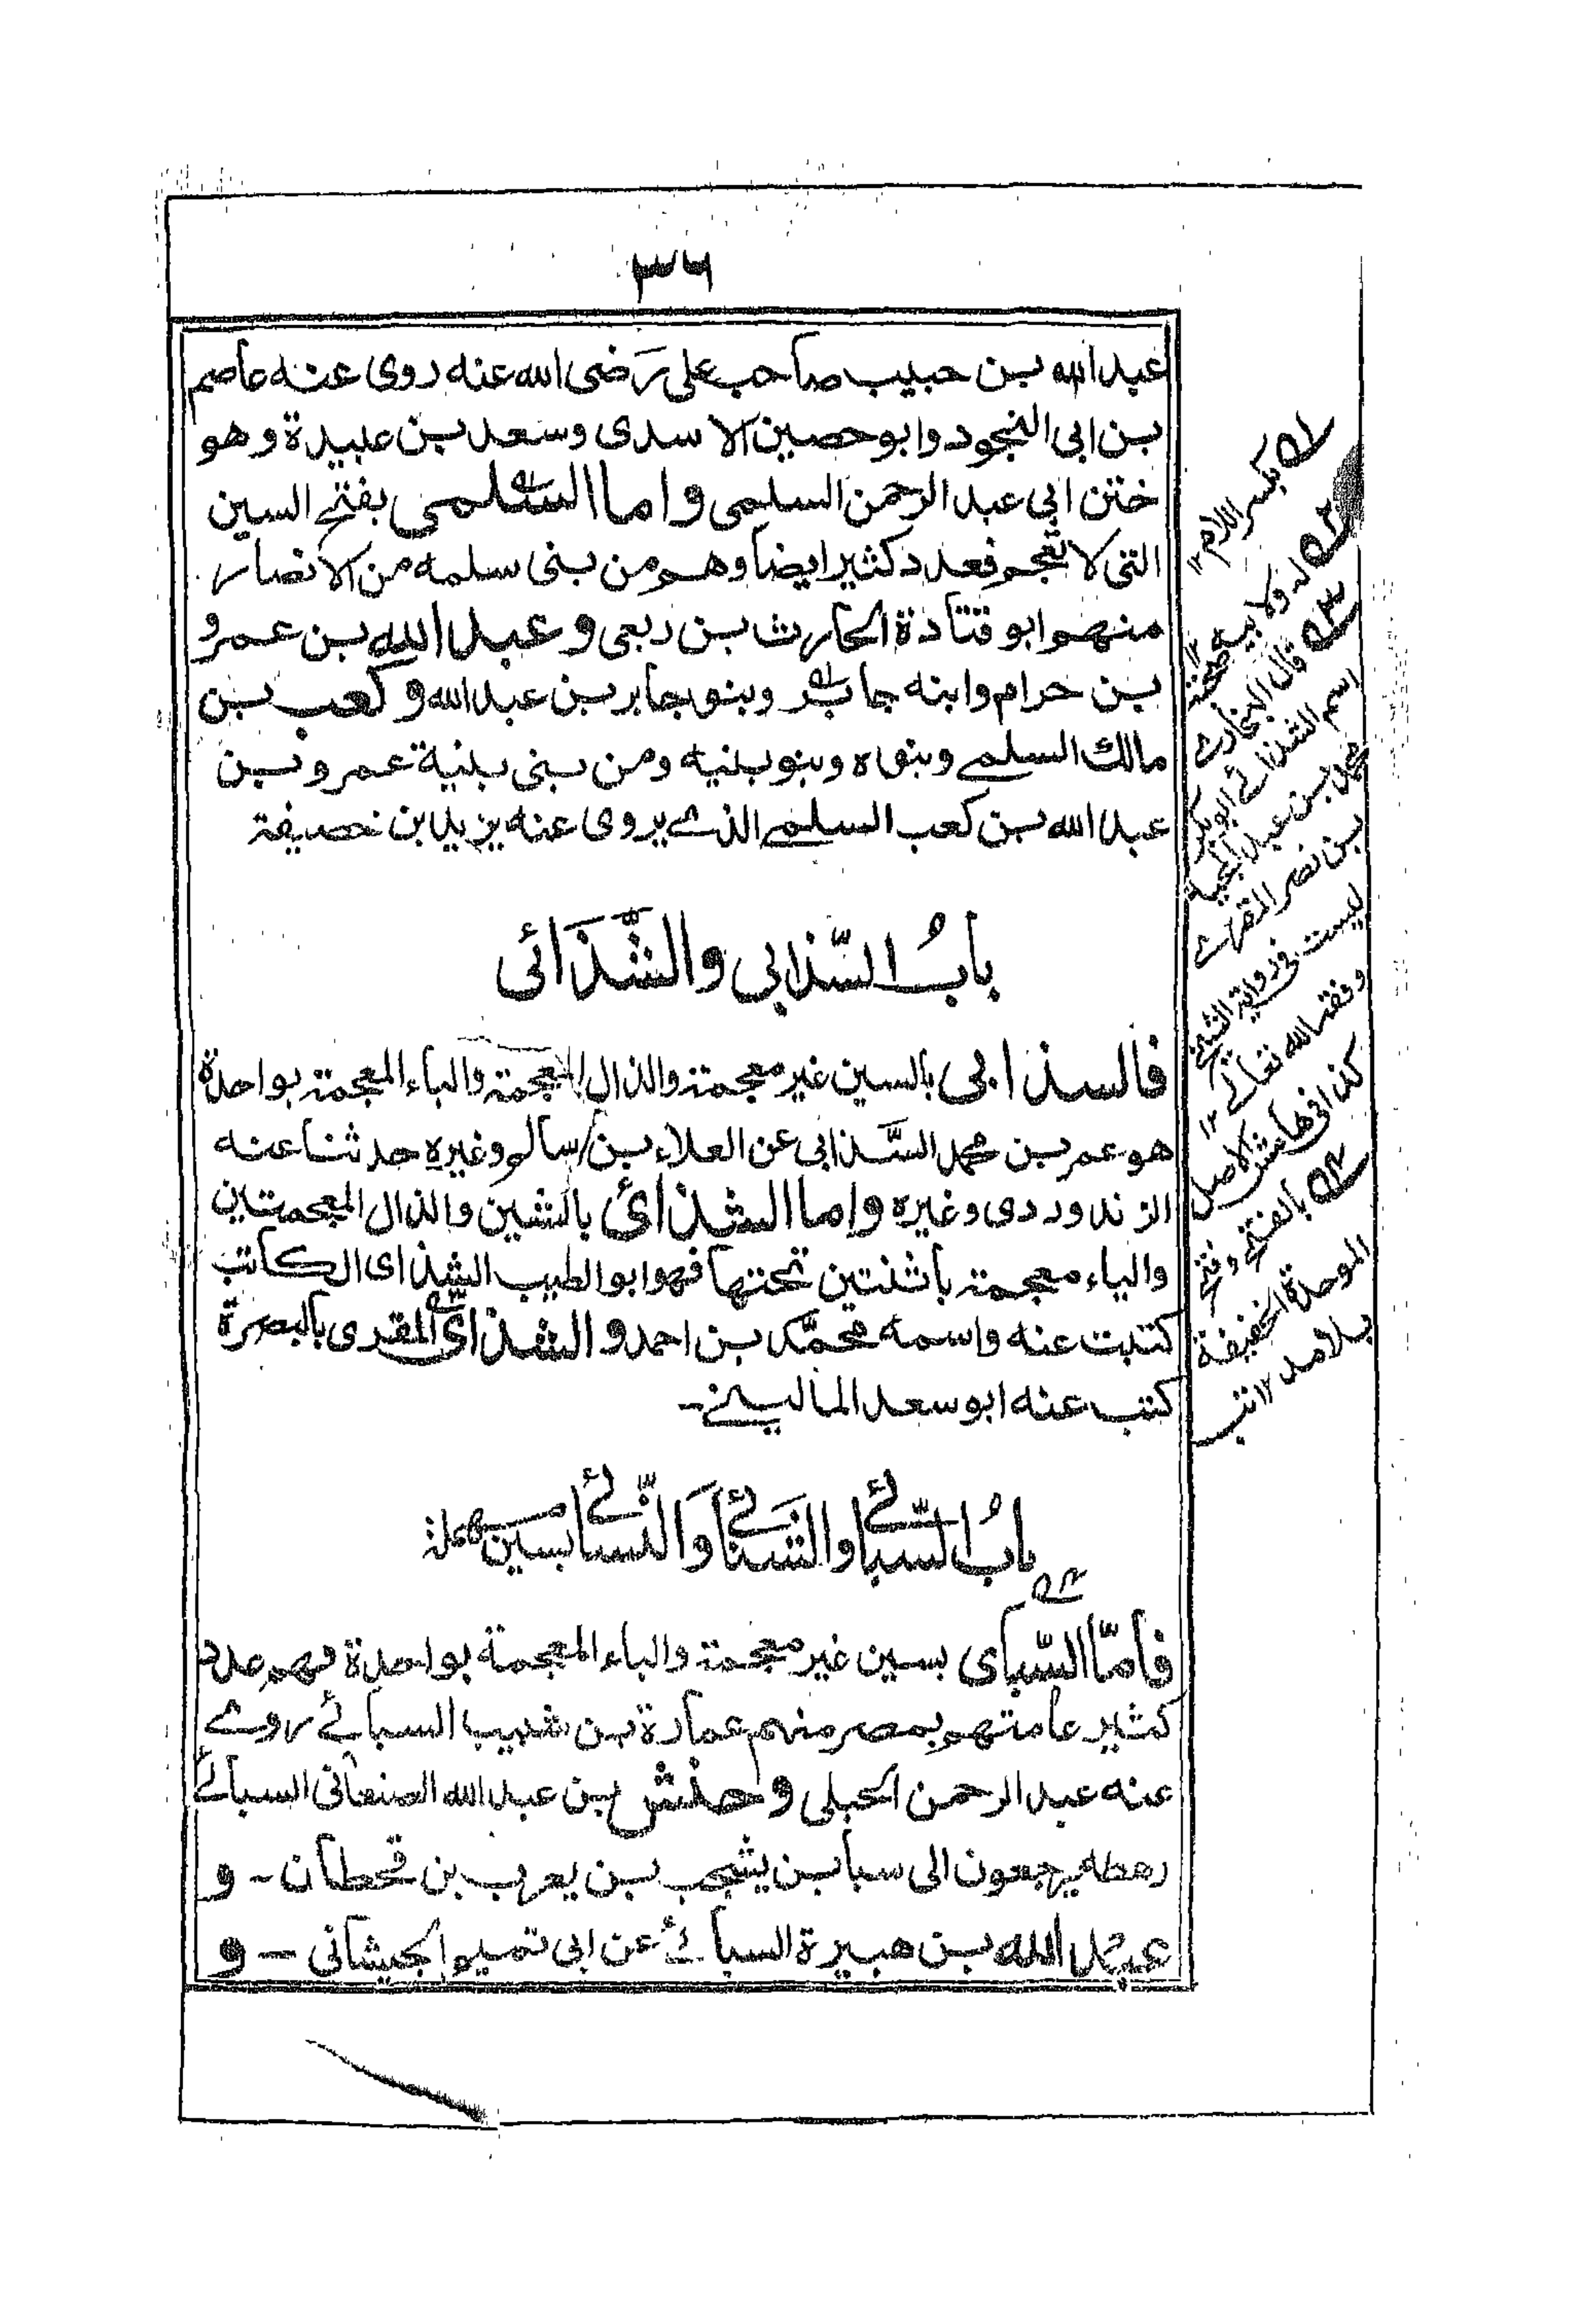 ٣٦
عبد الله بن حبيب صاحب على رَضى الله عنه روى عنه عاصم
بن ابى النجود وابو حصين الاسدى وسعد بن عبيدة وهو
ختن ابى عبد الرحمن السلمى واما السلمى بفتح السين
التى لا تعجم فعدد كثير ايضا وهم من بنى سلمه من الانصار
منهم ابو قتادة الحارث بن ربعى و عبد الله بن عمرو
بن حرام وابنه جابر وبنو جابر بن عبد الله و كعب بن
مالك السلمے وبنوه وبنو بنيه ومن بنى بنية عمرو بن
عبد الله بن كعب السلمے الذے يروى عنه يزيد بن خصيفة
بابُ السّذابي والشَّذَائى
فالسذابى بالسين غير معجمة والذال المعجمة والباء المعجمة بواحدة
هو عمر بن محمد السَّذابى عن العلاء بن سالم وغيره حدثنا عنه
الزندوردى وغيره واما الشذائ بالشين والذال المعجمتين
والياء معجمة باثنتين تحتها فهو ابو الطيب الشذاى الكاتب
كتبت عنه واسمه محمّد بن احمد و الشذائ المقرى بالبصرة
كتب عنه ابو سعد المالينے -
بابُ السّبائے والشَنائے وَالنّسائے بسين مهملة
فامّا السّباى بسين غير معجمة والباء المعجمة بواحدة فهم عدد
كثير عامتهم بمصر منهم عمارة بن شبيب السبائے روے
عنه عبد الرحمن الحبلى و حنش بن عبد الله الصنعانى السبائے
رهطه يرجعون الى سبا بن يشجب بن يعرب بن قحطان - و
عبد الله بن هبيرة السبائے عن ابى تميم الجيشانى - و
١ بكسر اللام ١٢
٢ له ولابيه صحبة ١٢
٣ قال البخارے
اسم الشذائے ابو بكر
محمد بن عبد
بن نصر المقرے
ليست فى رواية الشيخ
وفقه الله تعالے ١٢
كذا فى هامش الاصل
٤ بالفتح و فتح
الموحدة الخفيفة
بلا مد ١٢